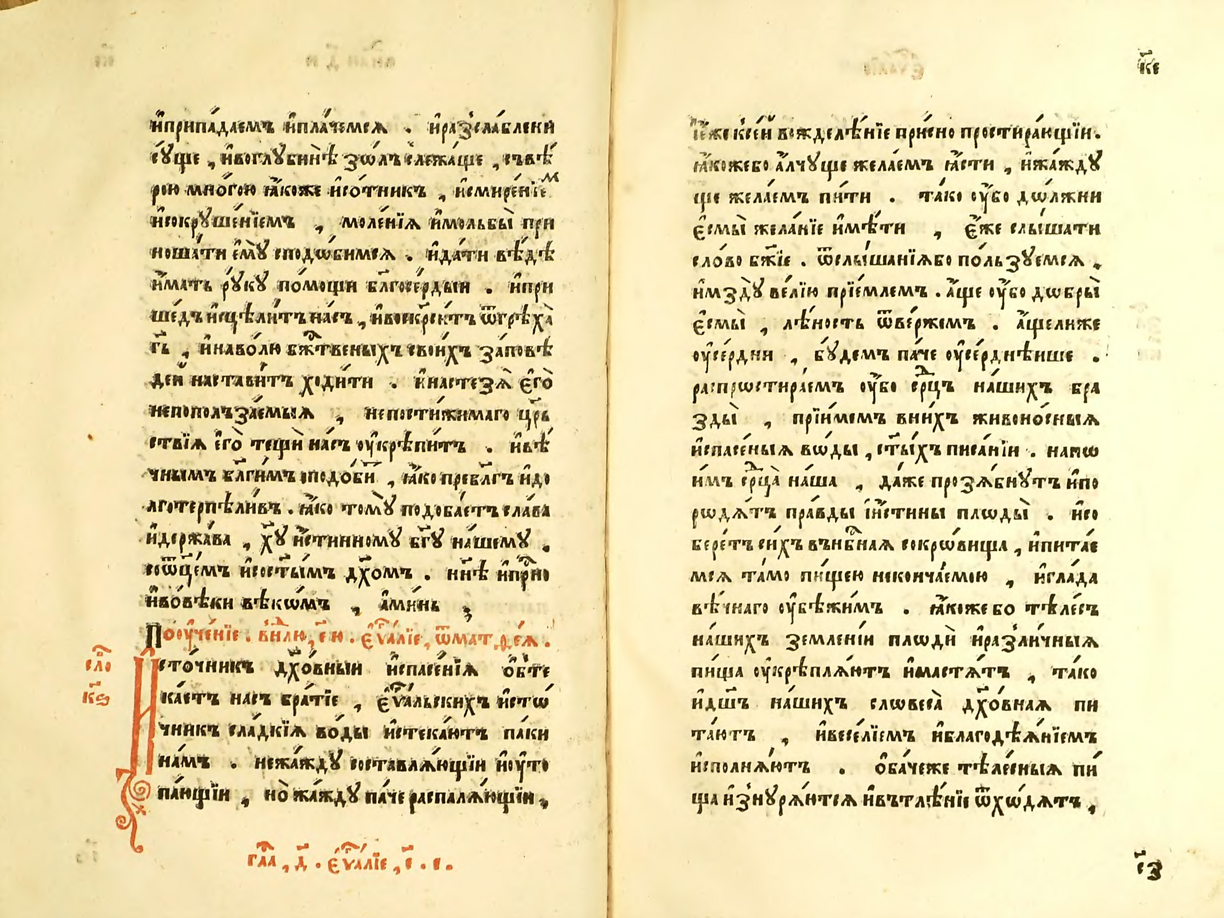 и҆припа́даемъ и҆пла́чемсѧ . и҆раз̾сла́блени
сꙋ́ще , и҆воглꙋбинѣ̀ зѡ́лъ слежа́ще , съвѣ́
рою мно́гою ꙗ҆́коже и҆со́тникъ , и҆смире́нїе
м
и҆сокрꙋше́нїемъ , моле́нїѧ и҆мольбы̀ при
ноша́ти є҆мꙋ̀ сподо́бимсѧ . и҆да́ти вѣ́дѣ
и҆́мать рꙋ́кꙋ по́мощи бл҃госе́рдыи . и҆при
ше́дъ и҆сцѣли́тъ на́съ , и҆воскр҃си́тъ ѿгрѣ́ха
гъ , и҆наво́лю бж҇твеныхъ свои́хъ за́повѣ
деи наста́витъ ходи́ти . и҆настезѧ̀ є҆го̀
непопо́лъза́емыѧ , непостижи́маго црⷭ҇ь
ствїѧ є҆го̀ тещѝ на́съ ᲂу҆крѣпи́тъ . и҆вѣ́
чнымъ бл҃ги́мъ сподо́би , ꙗ҆́ко пребл҃гъ и҆до
лготерпѣли́въ . ꙗ҆́ко томꙋ̀ подоба́етъ сла́ва
и҆держа́ва , хрⷭ҇тꙋ̀ и҆́стинномꙋ бг҃ꙋ на́шемꙋ ,
соѿц҃е́мъ и҆сост҃ы́мъ дх҃омъ . ны́нѣ и҆прⷭ҇но
и҆вове́ки вѣ́кѡмъ , а҆ми́нь ,
Поᲂуче́нїе . внⷣлю , є҃ ю . є҆ѵⷢ҇а́лїе , ѿматѳе́ѧ .
сло
к҃ѕ
И҆сто́чникъ дх҃о́вныи и҆спасе́нїѧ о҆бте
ка́етъ на́съ бра́тїе , є҆ѵⷢ҇а́льскихъ и҆стѡ́
чникъ сла́дкїѧ во́ды и҆стека́ютъ па́ки
на́мъ . нежа́ждꙋ составлѧ́ющїи и҆ᲂу҆то
лѧ́ющїи , но̀ жа́ждꙋ па́че распалѧ́ющїи ,
гла , д҃ . є҆ѵⷢ҇а́лїе , є҃ . є .
к҃е
є҆́же ксе́й вожделѣ́нїе при́сно простира́ющїи .
ꙗ҆́кожебо а҆́лчꙋще жела́емъ ꙗ҆́сти , и҆жа́ждꙋ
ще жела́емъ пи́ти . та́ко ᲂу҆́бо дѡ́лжни
є҆смы̀ жела́нїе и҆мѣ́ти , є҆́же слы́шати
сло́во бж҃їе . ѿслы́шанїѧбо по́льзꙋемсѧ ,
и҆мздꙋ̀ ве́лїю прїе́млемъ . а҆́ще ᲂу҆́бо дѡбрѝ
є҆смы̀ , лѣ́ность ѿве́ржемъ . а҆́щелиже
ᲂу҆се́рдни , бꙋ́демъ па́че ᲂу҆се́рднѣише .
распрѡстира́емъ ᲂу҆́бо срⷣцъ на́шихъ бра
зды̀ , прїи́мемъ вни́хъ живоно́сныѧ
и҆спасе́ныѧ вѡ́ды , ст҃ы́хъ писа́нїи . напѡ
и́мъ срⷣца̀ на́ша , да́же прозѧ́бнꙋтъ и҆по
рѡдѧ́тъ пра́вды и҆и҆́стины плѡды̀ . и҆со
бере́тъ си́хъ внн҃бⷭ҇наѧ сокро́вища , и҆пита́е
мсѧ та́мо пи́щею неконча́емою , и҆гла́да
вѣ́чнаго ᲂу҆бѣжи́мъ . ꙗ҆́коже бо тѣле́съ
на́шихъ земленїи плѡдѝ и҆раз̾ли́чныѧ
пи́ща ᲂу҆крѣплѧ́ютъ и҆мастѧ́тъ , та́ко
и҆дш҃ъ на́шихъ слѡвеса̀ дх҃о́внаѧ пи
та́ютъ , и҆весе́лїемъ и҆благодѣѧ́нїемъ
и҆сполнѧ́ютъ . ѻ҆ба́чеже тѣле́сныѧ пи́
ща и҆знꙋрѧ́ютсѧ и҆въ тлѣ́нїе ѿхѡ́дѧтъ ,
є҃з